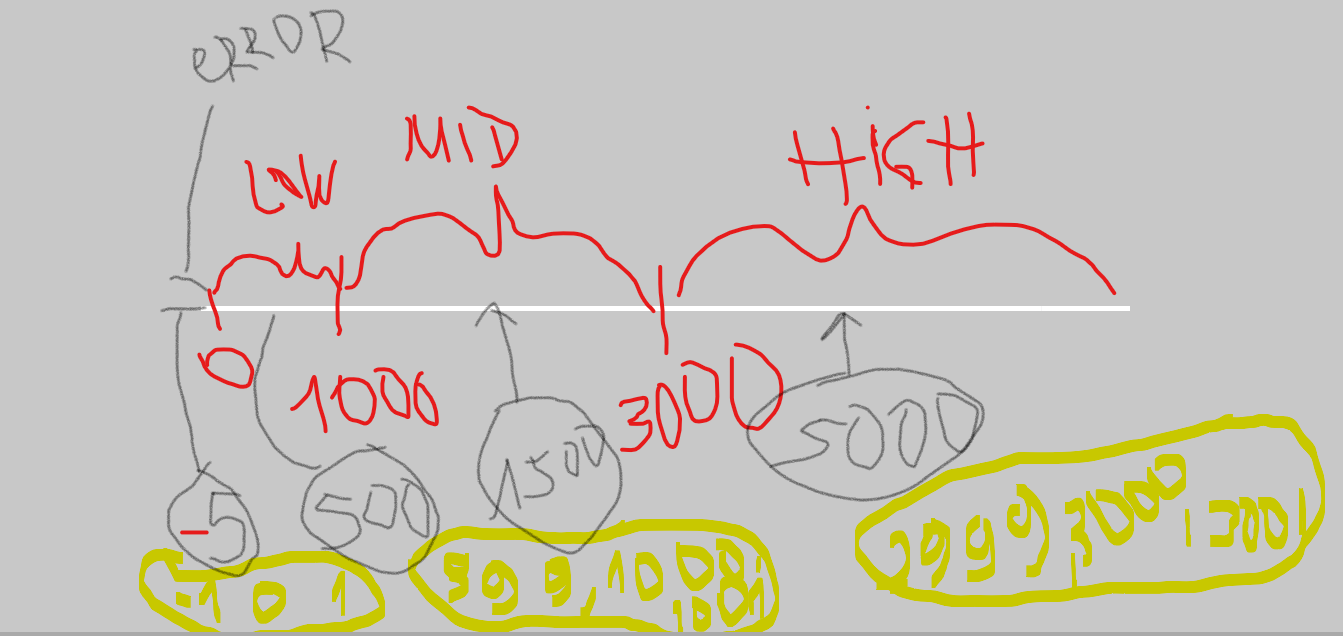 eRROR
LOW MID HiGH
0 1000 3000
-5 500 1500 5000
-1 0 1
999, 1000,
1001
2999, 3000, 3001